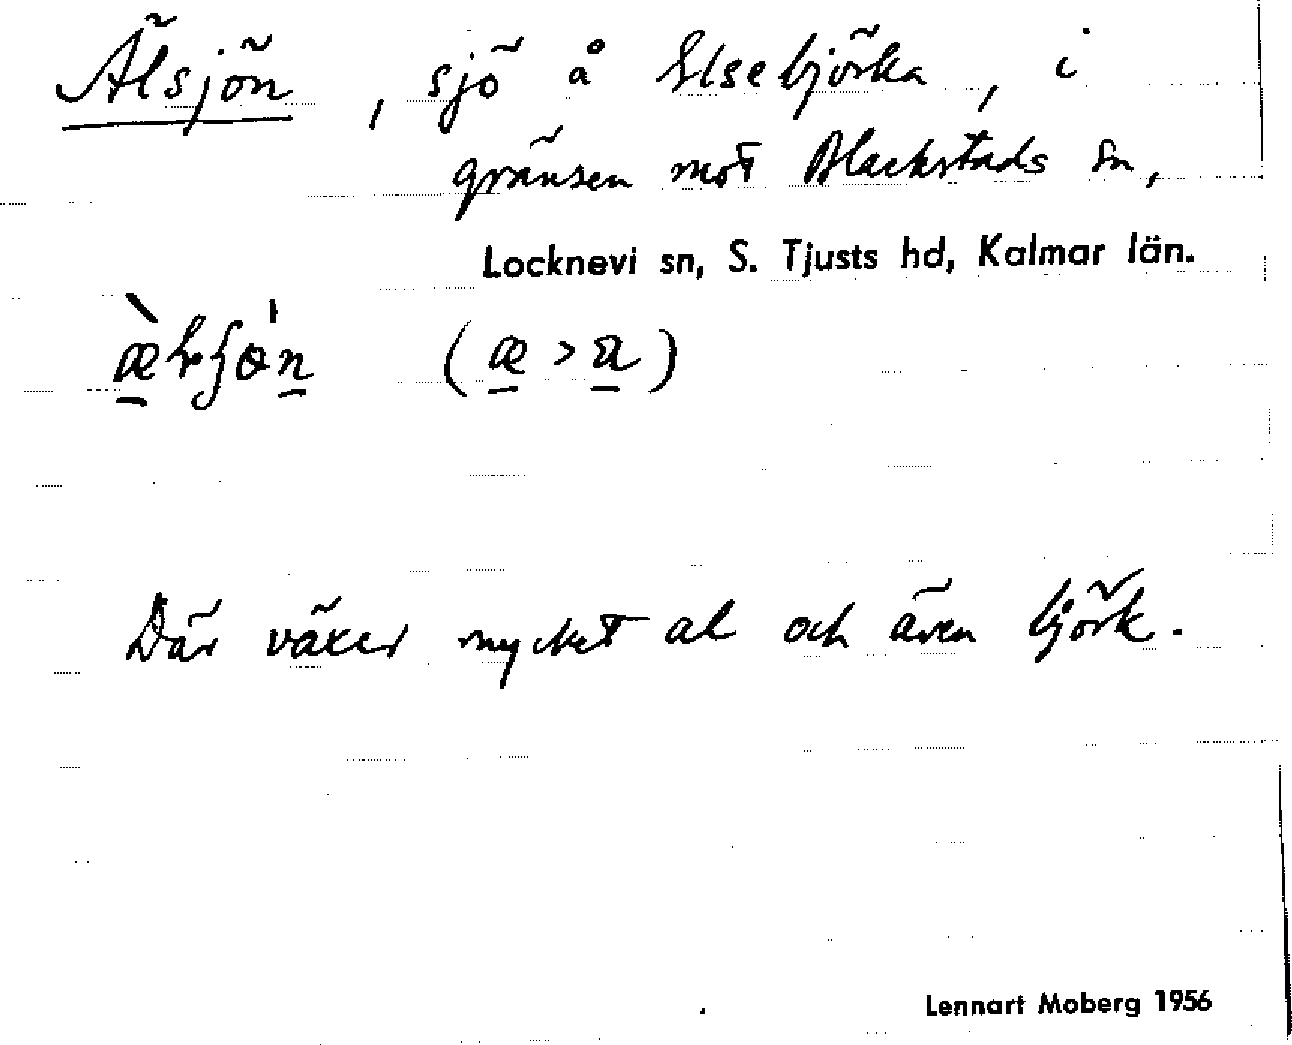 Älsjön, sjö å Elsebjörka, i
gränsen mot Blackstads sn,
Locknevi sn, S. Tjusts hd, Kalmar län.
Där växer mycket al och även björk.
Lennart Moberg 1956